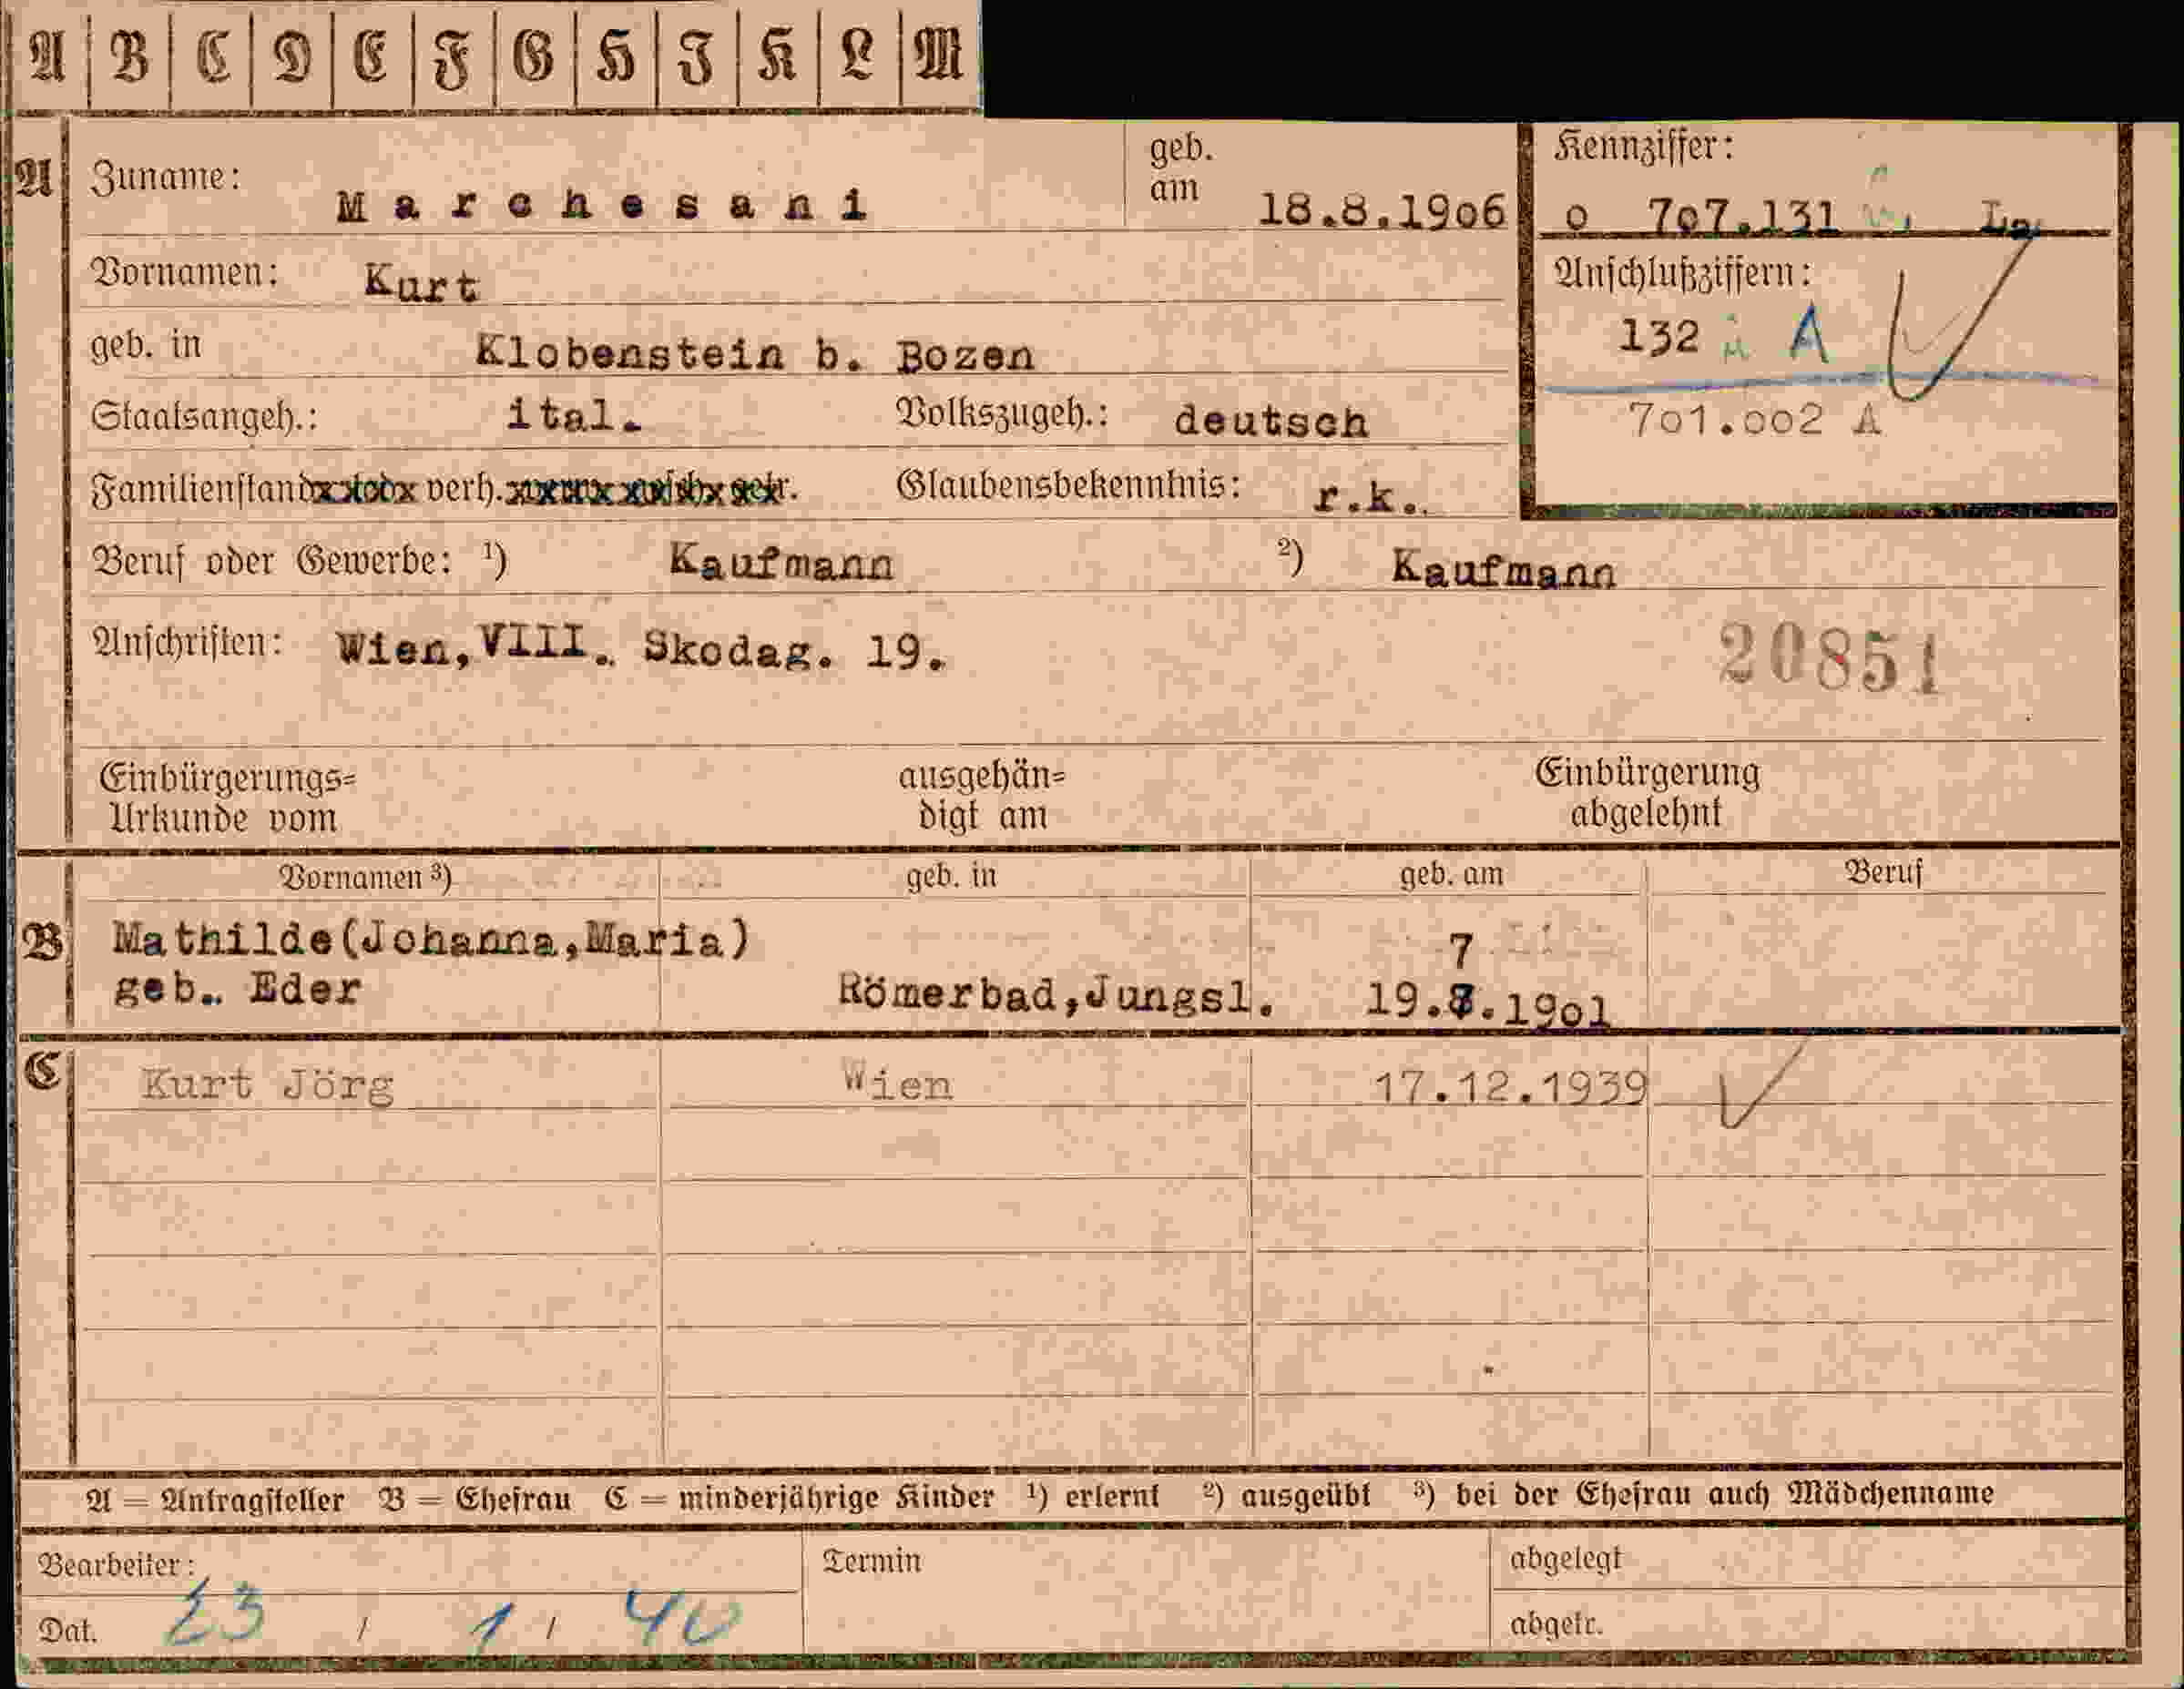 A B C D E F G H J K L M
A Zuname: Marchesani geb. am 18.8.1906 Kennziffer:
o 707.131 La
Vornamen: Kurt Anschlußziffern:
geb. in Klobenstein b. Bozen 132 A
Staatsangeh.: ital. Volkszugeh.: deutsch 701.002 A
Familienstand verh. Glaubensbekenntnis: r.k.
Beruf oder Gewerbe: 1) Kaufmann 2) Kaufmann
Anschriften: Wien, VIII. Skodag. 19. 20851
Einbürgerungs= ausgehän= Einbürgerung
Urkunde vom digt am abgelehnt
Vornamen 3) geb. in geb. am Beruf
B Mathilde(Johanna,Maria) 7
geb. Eder Römerbad,Jungsl. 19.8.1901
C Kurt Jörg Wien 17.12.1939
A = Antragsteller B = Ehefrau C = minderjährige Kinder 1) erlernt 2) ausgeübt 3) bei der Ehefrau auch Mädchenname
Bearbeiter: Termin abgelegt
Dat. 23 / 1 / 40 abgetr.